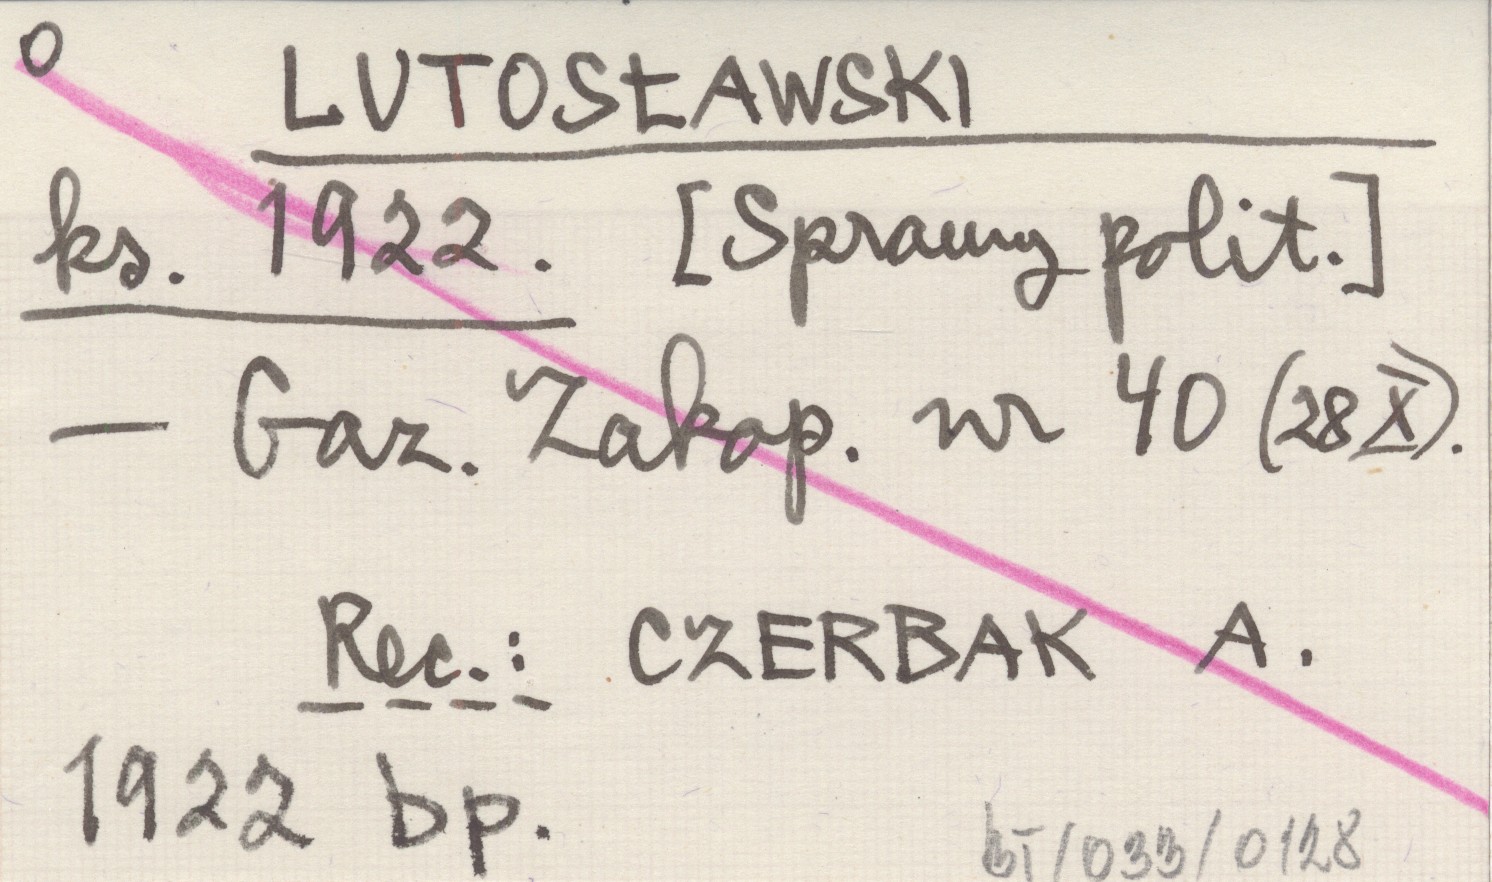 O LUTOSŁAWSKI
ks. 1922. [Sprawy polit.]
— Gaz. Zakop. nr 40 (28 X).
Rec.: CZERBAK A.
1922 bp.
bT/033/0128